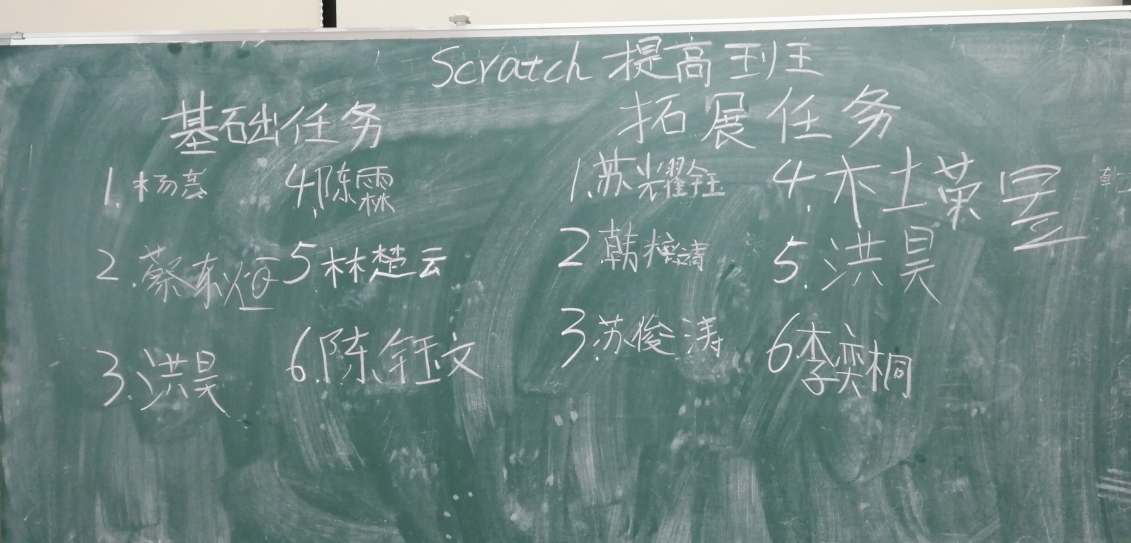 Scratch 提高班
基础任务
拓展任务
1. 杨
4. 陈霖
1. 苏耀钰
4. 木土荣昱
2. 蔡东烜
5. 林楚云
2 韩
5. 洪昊
3. 洪昊
6. 陈钰文
3. 苏俊涛
6 李奕桐